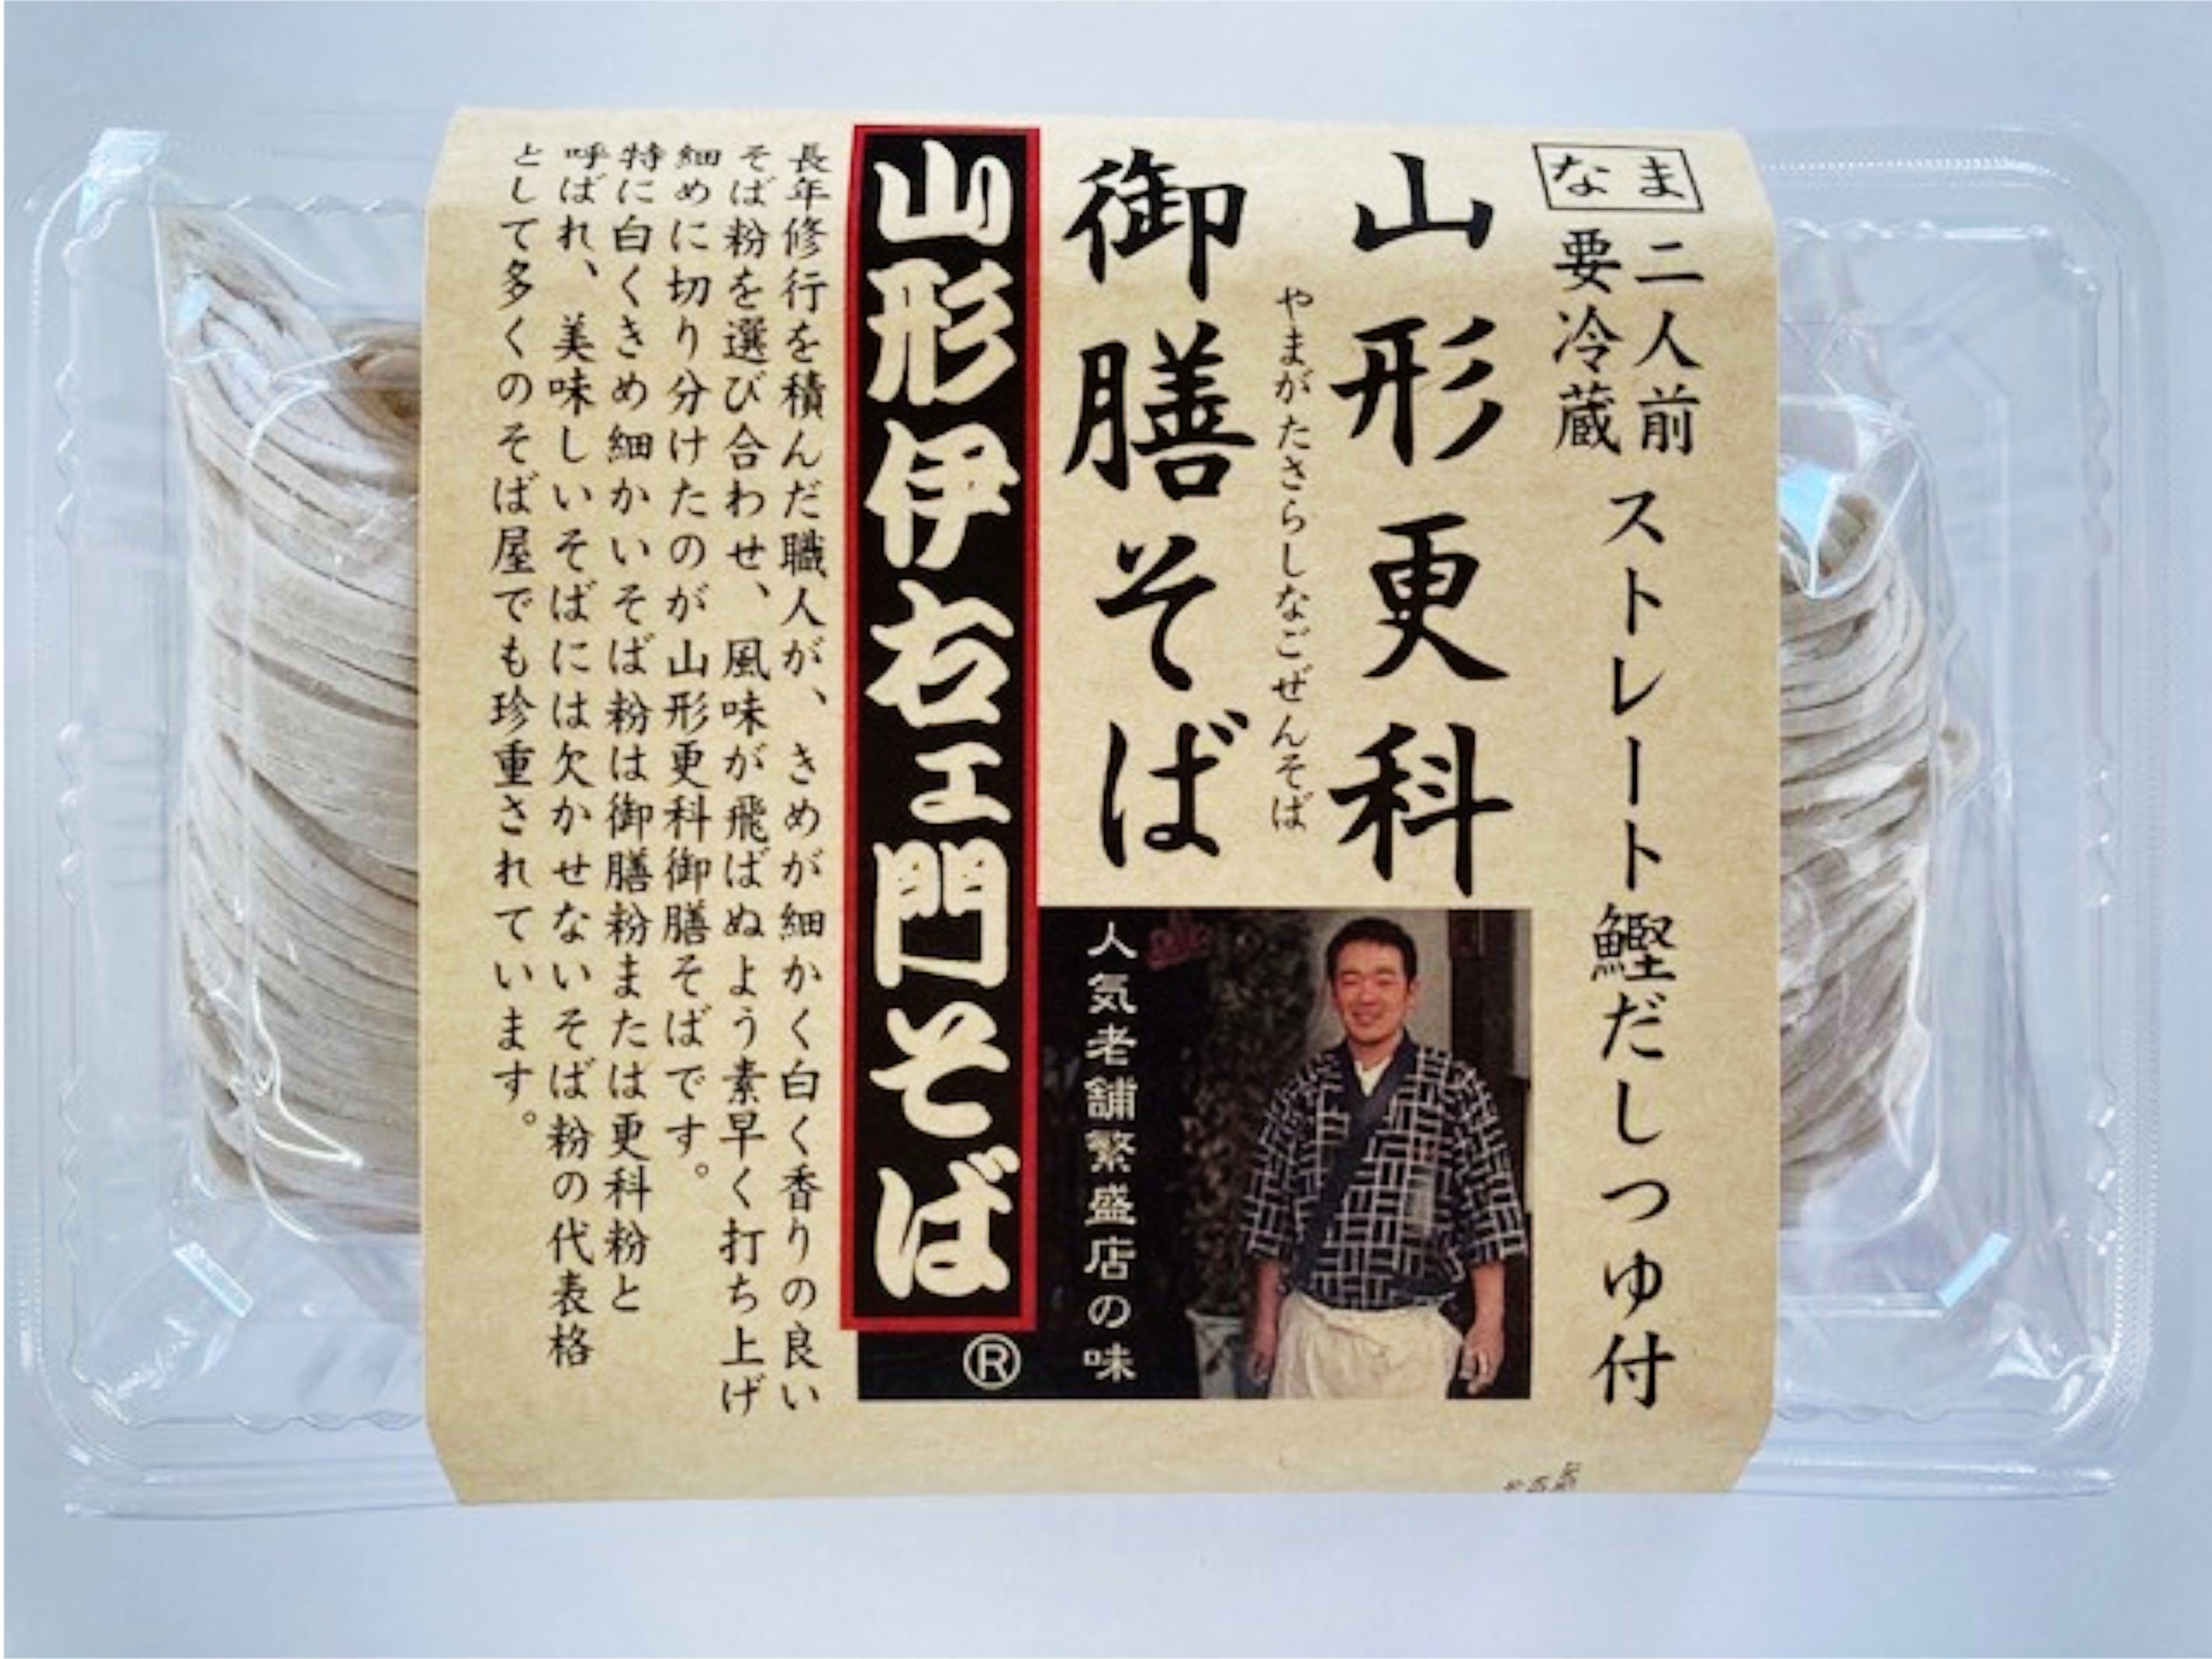 なま
二人前
要冷蔵
ストレート鰹だしつゆ付
山形更科
やまがたさらしなごぜんそば
御膳そば
人気老舗繁盛店の味
山形伊右エ門そば
®
長年修行を積んだ職人が、きめが細かく白く香りの良い
そば粉を選び合わせ、風味が飛ばぬよう素早く打ち上げ
細めに切り分けたのが山形更科御膳そばです。
特に白くきめ細かいそば粉は御膳粉または更科粉と
呼ばれ、美味しいそばには欠かせないそば粉の代表格
として多くのそば屋でも珍重されています。